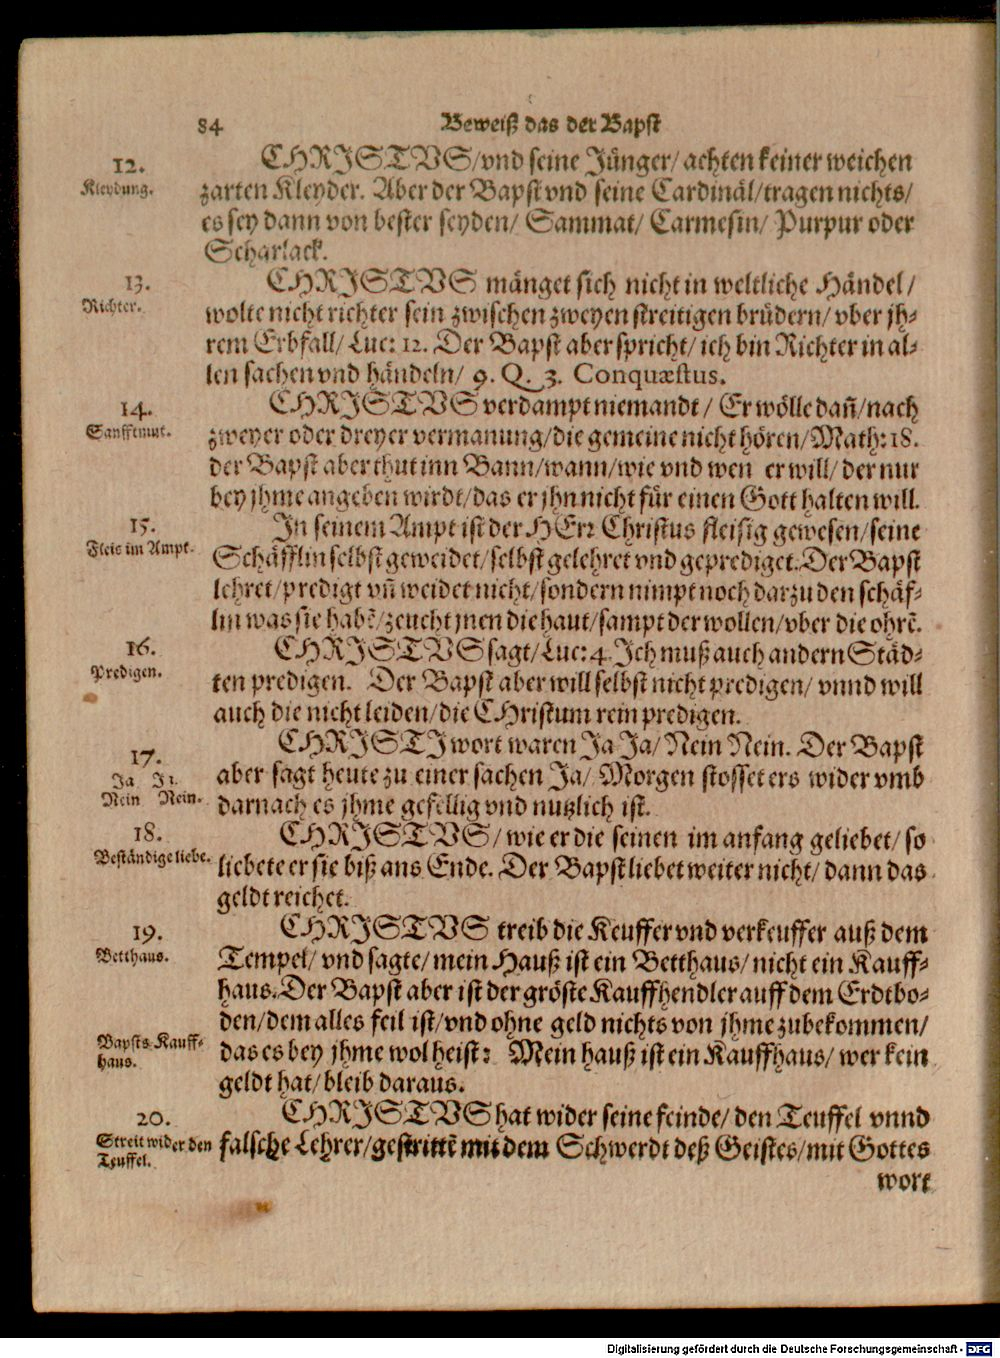 84 Beweiß das der Bapst
12.
Kleydung.
CHRISTVS/vnd seine Jünger/ achten keiner weichen
zarten Kleyder. Aber der Bapst vnd seine Cardinäl/tragen nichts/
es sey dann von bester seyden/ Sammat/ Carmesin/ Purpur oder
Scharlack.
13.
Richter.
CHRISTVS mänget sich nicht in weltliche Händel/
wolte nicht richter sein zwischen zweyen streitigen brüdern/ vber jh-
rem Erbfall/ Luc: 12. Der Bapst aber spricht/ ich bin Richter in al-
len sachen vnd händeln/ 9. Q. 3. Conquæstus.
14.
Sanfftmut.
CHRISTVS verdampt niemandt/ Er wölle dañ/nach
zweyer oder dreyer vermanung/die gemeine nicht hören/Math: 18.
der Bapst aber thut inn Bann/wann/wie vnd wen er will/ der nur
bey jhme angeben wirdt/das er jhn nicht für einen Gott halten will.
15.
Fleis im Ampt.
In seinem Ampt ist der HErr Christus fleisig gewesen/seine
Schäfflin selbst geweidet/selbst gelehret vnd geprediget. Der Bapst
lehret/predigt vñ weidet nicht/sondern nimpt noch darzu den schäf-
lin was sie habẽ/zeucht jnen die haut/sampt der wollen/vber die ohrẽ.
16.
Predigen.
CHRISTVS sagt/Luc: 4. Ich muß auch andern Städ-
ten predigen. Der Bapst aber will selbst nicht predigen/ vnnd will
auch die nicht leiden/die CHristum rein predigen.
17.
Ja Ja
Nein Nein.
CHRISTI wort waren Ja Ja/ Nein Nein. Der Bapst
aber sagt heute zu einer sachen Ja/ Morgen stosset ers wider vmb
darnach es jhme gefellig vnd nutzlich ist.
18.
Beständige liebe.
CHRISTVS/ wie er die seinen im anfang geliebet/ so
liebete er sie biß ans Ende. Der Bapst liebet weiter nicht/ dann das
geldt reichet.
19.
Betthaus.
CHRISTVS treib die Keuffer vnd verkeuffer auß dem
Tempel/ vnd sagte/ mein Hauß ist ein Betthaus/ nicht ein Kauff-
haus. Der Bapst aber ist der gröste Kauffhendler auff dem Erdtbo-
den/dem alles feil ist/vnd ohne geld nichts von jhme zubekommen/
Bapsts Kauff-
haus.
das es bey jhme wol heist: Mein hauß ist ein Kauffhaus/ wer kein
geldt hat/bleib daraus.
20.
Streit wider den
Teuffel.
CHRISTVS hat wider seine feinde/ den Teuffel vnnd
falsche Lehrer/gestrittẽ mit dem Schwerdt deß Geistes/mit Gottes
wort
Digitalisierung gefördert durch die Deutsche Forschungsgemeinschaft - DFG